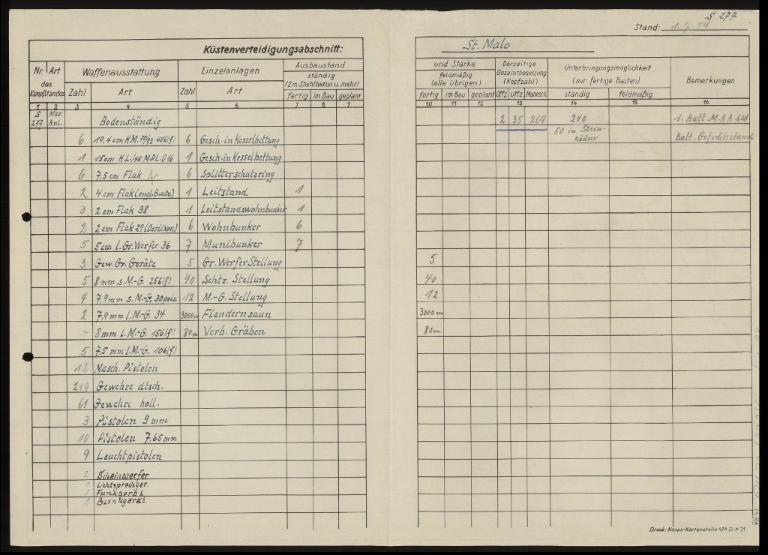 S 277
Stand: 1. 7. 44
Küstenverteidigungsabschnitt: St. Malo
Nr. Art
des
Kampfstandes
Waffenausstattung
Zahl Art
Einzelanlagen
Zahl Art
Ausbaustand
ständig
(2m Stahlbeton u. mehr)
fertig im Bau geplant
und Stärke
feldmäßig
(alle übrigen)
fertig im Bau geplant
Derzeitige
Gesamtbesatzung
(Kopfzahl)
Offz. Uffz. Mannsch.
Unterbringungsmöglichkeit
(nur fertige Bauten)
ständig feldmäßig
Bemerkungen
1 2 3 4 5 6 7 8 9 10 11 12 13 14 15 16
S 277 Mar. Anl. Bodenständig 2 35 269 240 1. Batl. M.A.A. 608
60 in Stein-
häuser
Batl. Gefechtsstand
6 19,4 cm K.M. 70/93 6 Gesch.-in Kesselbettung
1 15 cm K.L/40 1 Gesch.-in Kesselbettung
6 7,5 cm Flak 6 Splitterschutzring
2 4 cm Flak 1 Leitstand 1
3 2 cm Flak 38 1 Leitstandswohnbunker 1
2 2 cm Flak 29 (Oerlikon) 6 Wohnbunker 6
5 5 cm l. Gr. Werfer 36 7 Munibunker 7
3 Gew. Gr. Geräte 5 Gr. Werfer Stellung 5
5 8 mm s. M.-G. 256(f) 40 Schtz. Stellung 40
4 7,9 mm s. M.-G. 30 poln. 12 M.-G. Stellung 12
2 7,9 mm l. M.-G. 34 3000 m Flandernzaun 3000 m
- 8 mm l. M.-G. 156(f) 80 m Verb. Gräben 80 m
5 7,5 mm l. M.-G. 106(f)
12 Masch. Pistolen
219 Gewehre dtsch.
61 Gewehre holl.
3 Pistolen 9 mm
10 Pistolen 7.65 mm
9 Leuchtpistolen
2 Scheinwerfer
Funkgerät
Blinkgerät
Druck: Korps-Kartenstelle